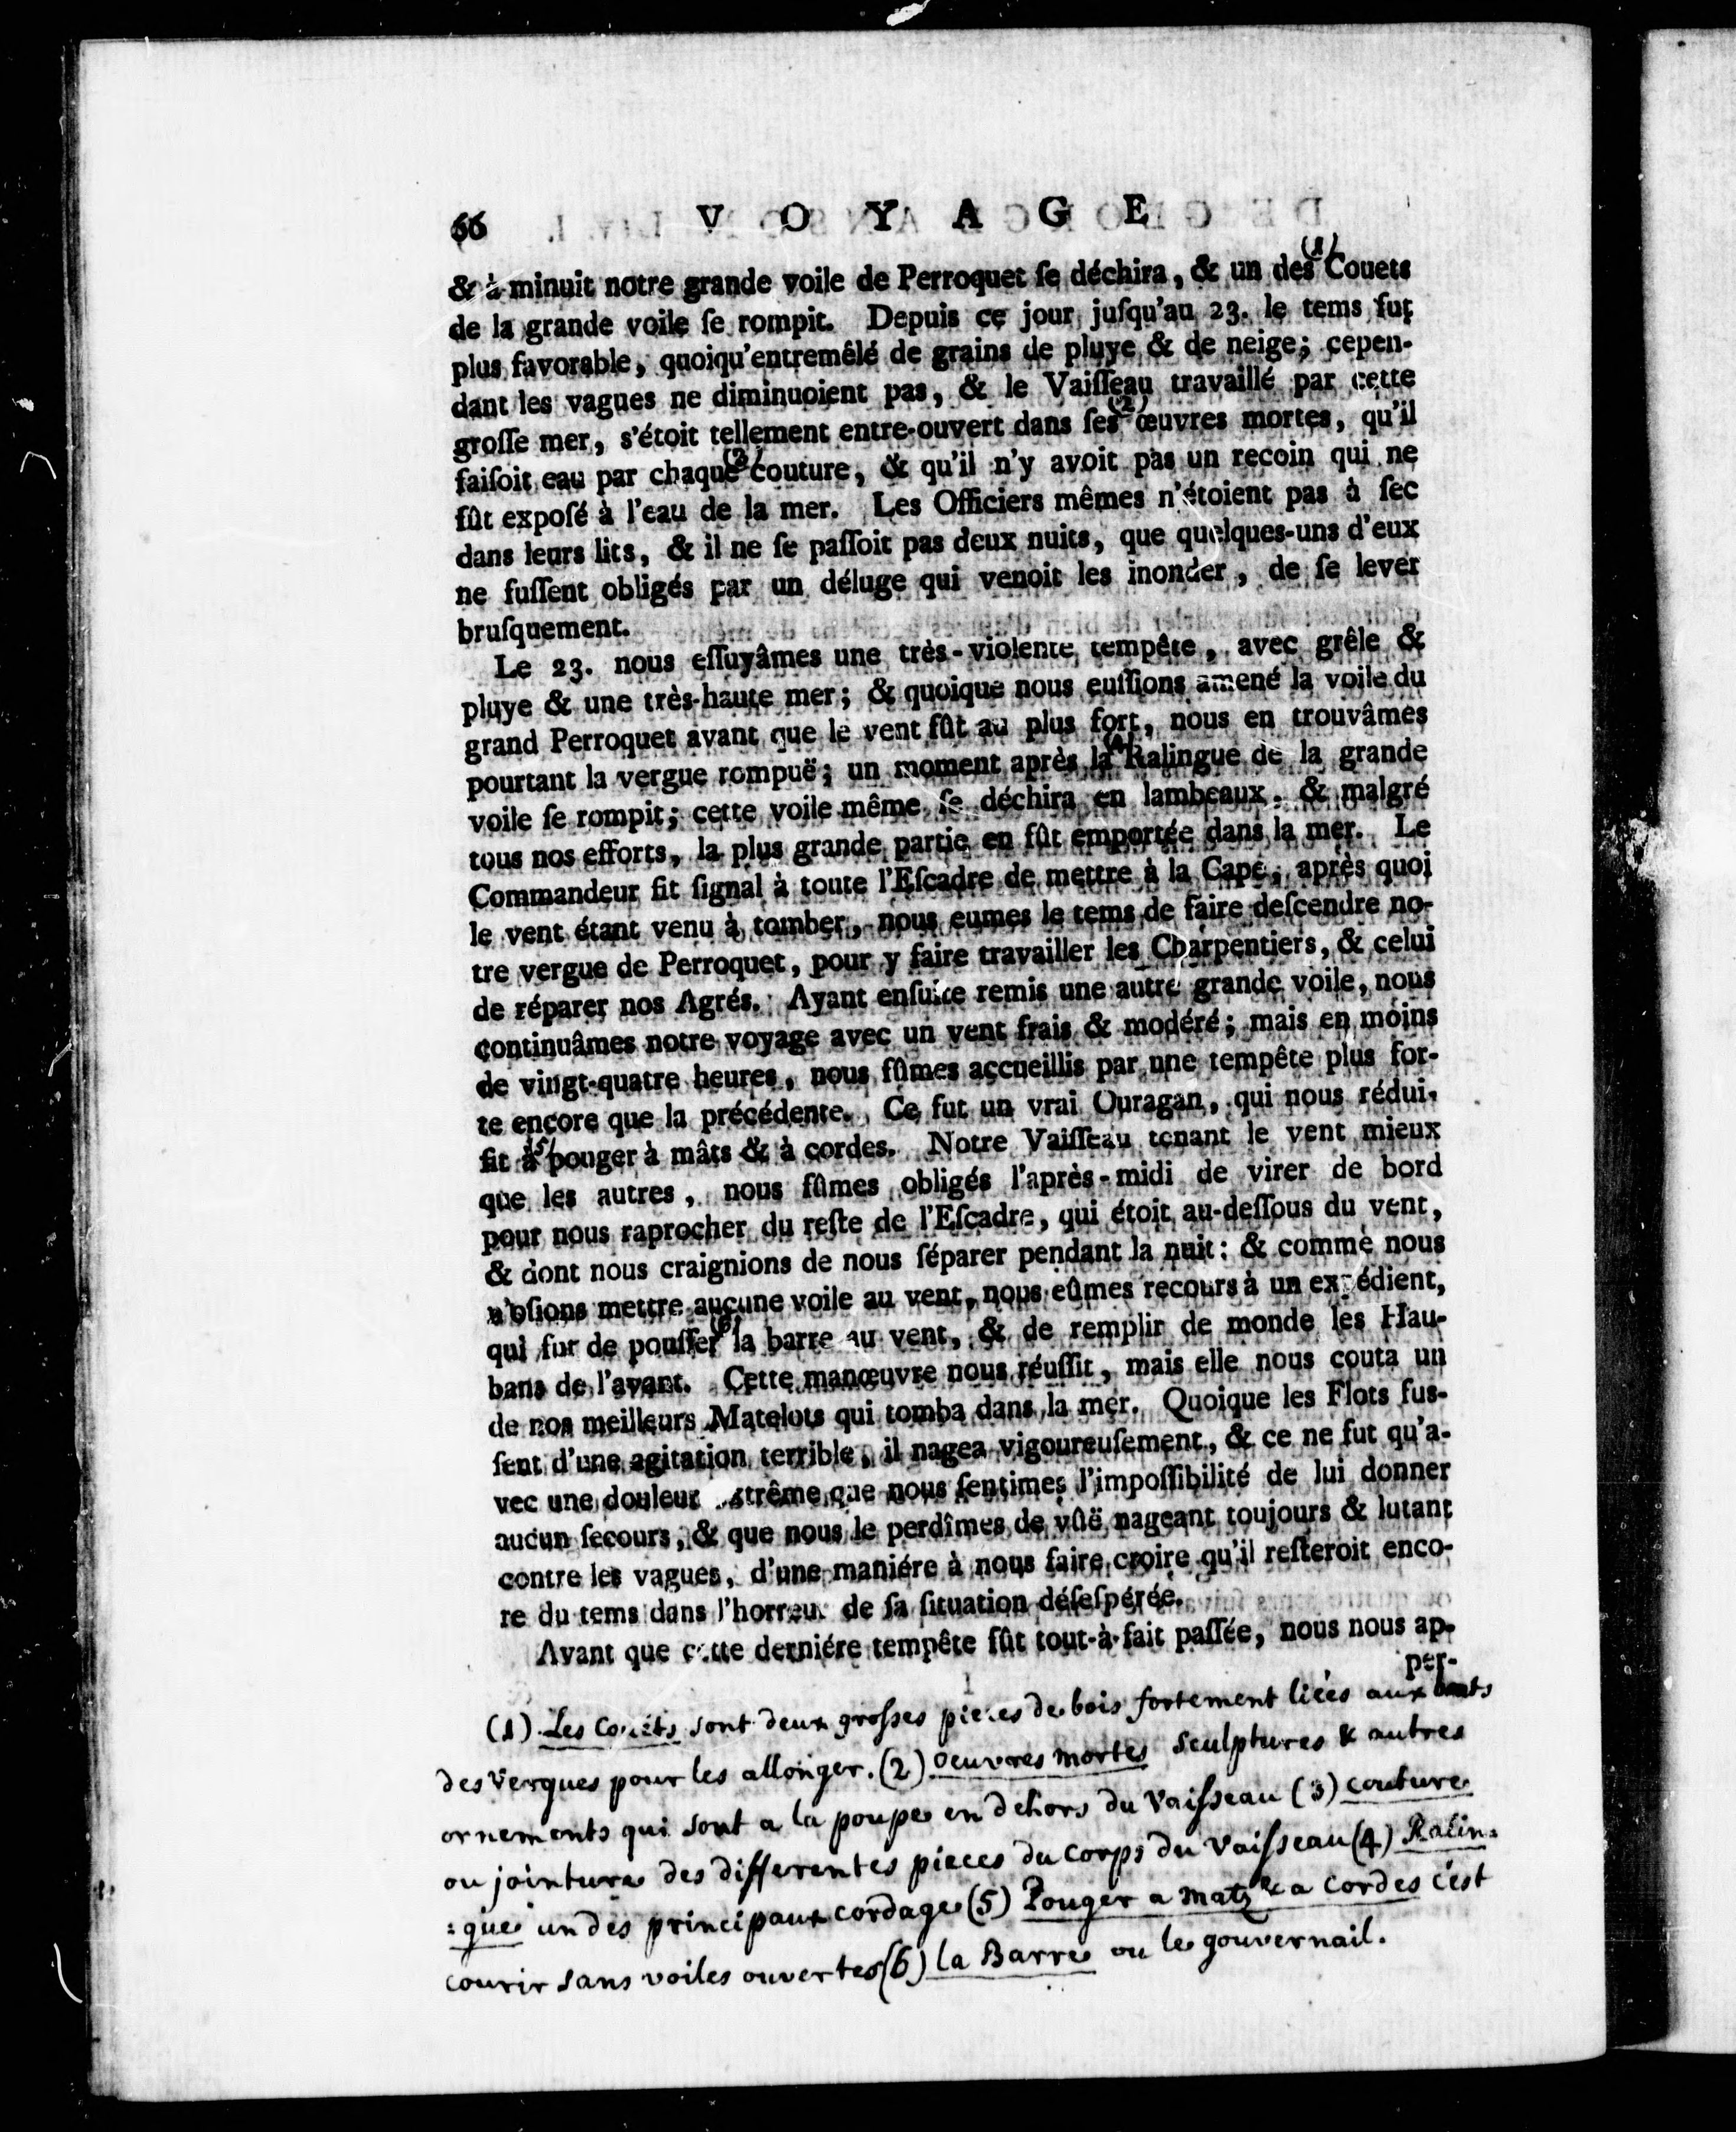 66 VOYAGE
& à minuit notre grande voile de Perroquet ſe déchira, & un des (1) Couets
de la grande voile ſe rompit. Depuis ce jour juſqu'au 23. le tems fut
plus favorable, quoiqu'entremêlé de grains de pluye & de neige; cepen-
dant les vagues ne diminuoient pas, & le Vaiſſeau travaillé par cette
groſſe mer, s'étoit tellement entre-ouvert dans ſes (2) œuvres mortes, qu'il
faiſoit eau par chaque (3) couture, & qu'il n'y avoit pas un recoin qui ne
fût expoſé à l'eau de la mer. Les Officiers mêmes n'étoient pas à ſec
dans leurs lits, & il ne ſe paſſoit pas deux nuits, que quelques-uns d'eux
ne fuſſent obligés par un déluge qui venoit les inonder, de ſe lever
bruſquement.
Le 23. nous eſſuyâmes une très-violente tempête, avec grêle &
pluye & une très-haute mer; & quoique nous euſſions amené la voile du
grand Perroquet avant que le vent fût au plus fort, nous en trouvâmes
pourtant la vergue rompuë; un moment après la (4) Ralingue de la grande
voile ſe rompit; cette voile même ſe déchira en lambeaux, & malgré
tous nos efforts, la plus grande partie en fût emportée dans la mer. Le
Commandeur fit ſignal à toute l'Eſcadre de mettre à la Cape; après quoi
le vent étant venu à tomber, nous eumes le tems de faire deſcendre no-
tre vergue de Perroquet, pour y faire travailler les Charpentiers, & celui
de réparer nos Agrés. Ayant enſuite remis une autre grande voile, nous
continuâmes notre voyage avec un vent frais & modéré; mais en moins
de vingt-quatre heures, nous fûmes accueillis par une tempête plus for-
te encore que la précédente. Ce fut un vrai Ouragan, qui nous rédui-
ſit à (5) pouger à mâts & à cordes. Notre Vaiſſeau tenant le vent mieux
que les autres, nous fûmes obligés l'après-midi de virer de bord
pour nous raprocher du reſte de l'Eſcadre, qui étoit au-deſſous du vent,
& dont nous craignions de nous ſéparer pendant la nuit: & comme nous
n'oſions mettre aucune voile au vent, nous eûmes recours à un expédient,
qui fut de pouſſer (6) la barre au vent, & de remplir de monde les Hau-
bans de l'avant. Cette manœuvre nous réuſſit, mais elle nous couta un
de nos meilleurs Matelots qui tomba dans la mer. Quoique les Flots fus-
ſent d'une agitation terrible, il nagea vigoureuſement, & ce ne fut qu'a-
vec une douleur extrême que nous ſentimes l'impoſſibilité de lui donner
aucun ſecours, & que nous le perdîmes de vûë nageant toujours & lutant
contre les vagues, d'une maniére à nous faire croire qu'il reſteroit enco-
re du tems dans l'horreur de ſa ſituation déſeſpérée.
Avant que cette derniére tempête fût tout-à-fait paſſée, nous nous ap-
per-
(1) Les Couëts sont deux grosses pieces de bois fortement liées aux bouts
des Vergues pour les allonger. (2) oeuvres mortes sculptures & autres
ornements qui sont a la poupe en dehors du Vaisseau (3) couture
ou jointure des differentes pieces du corps du Vaisseau (4) Ralin=
=gue un des principaux cordage (5) Pouger a matz & a cordes c'est
courir sans voiles ouvertes (6) la Barre ou le gouvernail.